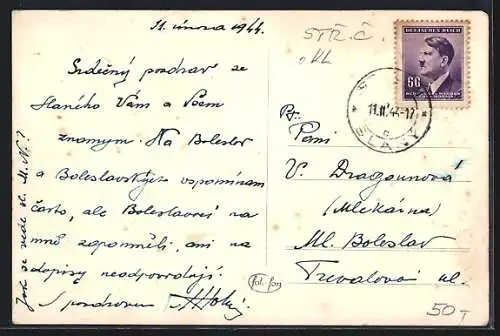 11. února 1944.
STŘ. Č.
DEUTSCHES REICH
60
11.II.44-17
SLANÝ
Srdečný pozdrav ze
Slaného Vám a všem
známym. Na Boleslav
a Boleslavských vzpomínám
často, ale Boleslavové na
mně zapomněli, ani na
dopisy neodpovídají.
S pozdravem
Jak se vede sl. M. N.?
Pí.
Paní
V. Dragounová
(Mlékárna)
Ml. Boleslav
ul.
fot. fon
50